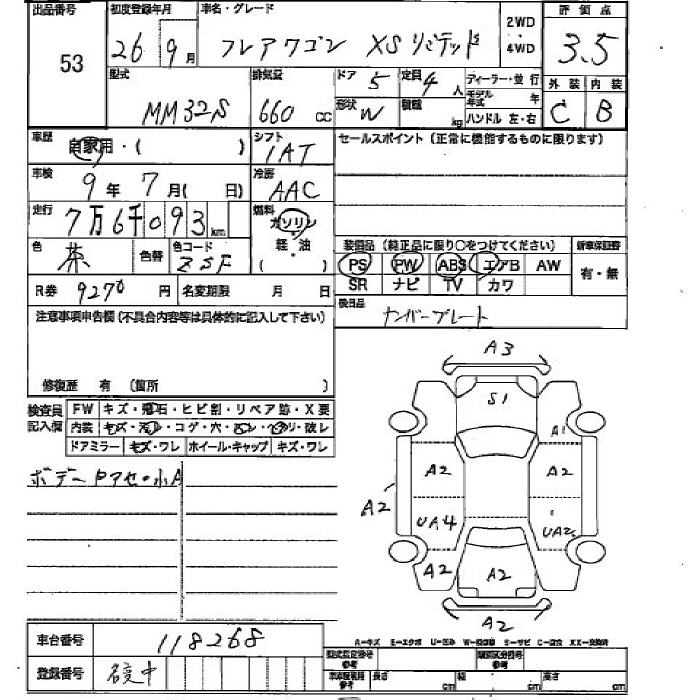 出品番号 初度登録年月 車名・グレード 2WD 評価点
53 26年 9月 フレアワゴン XSリミテッド 4WD 3.5
型式 排気量 ドア 5 定員 4人 ディーラー・並行 外装 内装
MM32S 660 CC 形状 W 積載 kg モデル年式 年 C B
ハンドル 左・右
車歴 自家用・( ) シフト セールスポイント(正常に機能するものに限ります)
IAT
車検 9年 7月( 日) 冷房
AAC
走行 7万6千093km 燃料 ガソリン
軽・油
( )
色 茶 色替 色コード ZSF 装備品(純正品に限り○をつけてください) 新車保証書
PS PW ABS エアB AW 有・無
R券 9270円 名変期限 月 日 SR ナビ TV カワ
後日品
注意事項申告欄(不具合内容等は具体的に記入して下さい) ナンバープレート
修復歴 有 (箇所 )
検査員記入欄 FW キズ・飛石・ヒビ割・リペア跡・X要
内装 キズ・汚レ・コゲ・穴・ ・ ・破レ
ドアミラー キズ・ワレ ホイール・キャップ キズ・ワレ
ボデー
A3
S1
A1
A2 A2
A2
UA4 UA2
A2 A2 A2
A2
A-キズ E-エクボ U-凹み S-サビ C-腐食 XX-交換済
車台番号 118268
型式指定番号 参考 類別区分番号 参考
登録番号 名変中
長さ cm 幅 cm 高さ cm